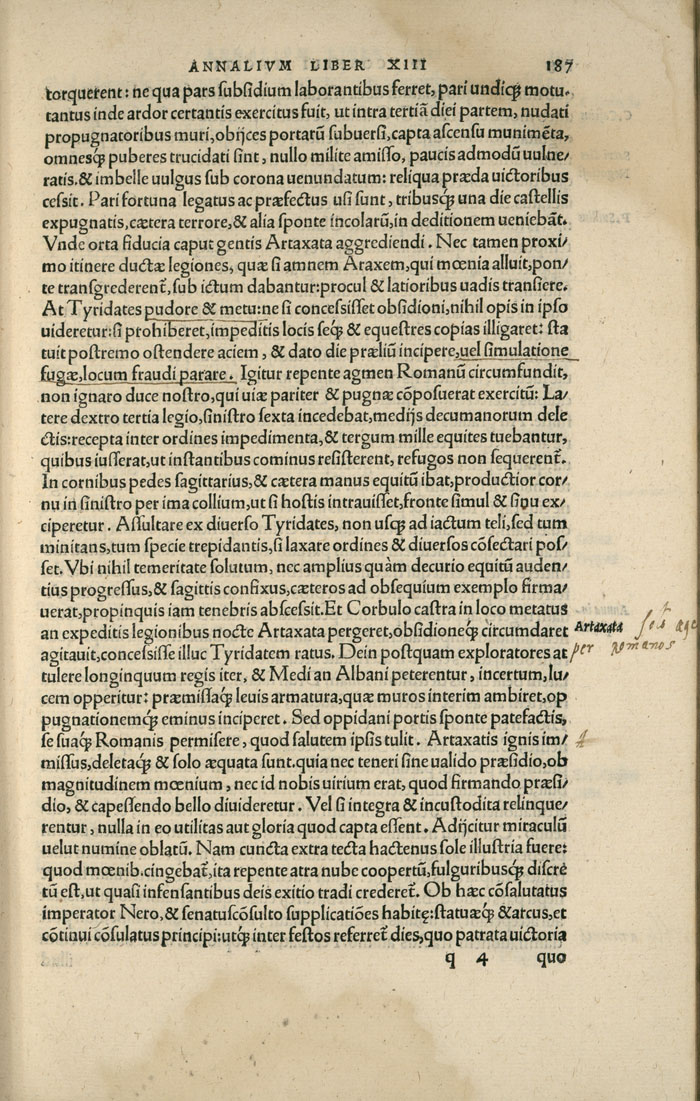 ANNALIVM LIBER XIII 187
torquerent: ne qua pars ſubſidium laborantibus ferret, pari undiqꝫ motu.
tantus inde ardor certantis exercitus fuit, ut intra tertiā diei partem, nudati
propugnatoribus muri, obijces portarū ſubuerſi, capta aſcenſu munimēta,
omnesqꝫ puberes trucidati ſint, nullo milite amiſſo, paucis admodū uulne/
ratis. & imbelle uulgus ſub corona uenundatum: reliqua præda uictoribus
ceſſit. Pari fortuna legatus ac præfectus uſi ſunt, tribusqꝫ una die caſtellis
expugnatis, cætera terrore, & alia ſponte incolarū, in deditionem ueniebāt.
Vnde orta fiducia caput gentis Artaxata aggrediendi. Nec tamen proxi/
mo itinere ductæ legiones, quæ ſi amnem Araxem, qui mœnia alluit, pon/
te tranſgrederent̄, ſub ictum dabantur: procul & latioribus uadis tranſiere.
At Tyridates pudore & metu: ne ſi conceſſiſſet obſidioni, nihil opis in ipſo
uideretur: ſi prohiberet, impeditis locis ſeqꝫ & equeſtres copias illigaret: ſta
tuit poſtremo oſtendere aciem, & dato die prælīu incipere, uel ſimulatione
fugæ, locum fraudi parare. Igitur repente agmen Romanū circumfundit,
non ignaro duce noſtro, qui uiæ pariter & pugnæ cōpoſuerat exercitū: La/
tere dextro tertia legio, ſiniſtro ſexta incedebat, medijs decumanorum dele
ctis: recepta inter ordines impedimenta, & tergum mille equites tuebantur,
quibus iuſſerat, ut inſtantibus cominus reſiſterent, refugos non ſequerent̄.
In cornibus pedes ſagittarius, & cætera manus equitū ibat, productior cor/
nu in ſiniſtro per ima collium, ut ſi hoſtis intrauiſſet, fronte ſimul & ſinu ex/
ciperetur. Aſſultare ex diuerſo Tyridates, non uſqꝫ ad iactum teli, ſed tum
minitans, tum ſpecie trepidantis, ſi laxare ordines & diuerſos cōſectari poſ/
ſet. Vbi nihil temeritate ſolutum, nec amplius quàm decurio equitū auden/
tius progreſſus, & ſagittis confixus, cæteros ad obſequium exemplo firma/
uerat, propinquis iam tenebris abſceſſit. Et Corbulo caſtra in loco metatus
an expeditis legionibus nocte Artaxata pergeret, obſidioneqꝫ circumdaret
Artaxata
agitauit, conceſſiſſe illuc Tyridatem ratus. Dein poſtquam exploratores at
per romanos
tulere longinquum regis iter, & Medi an Albani peterentur, incertum, lu/
cem opperitur: præmiſſaqꝫ leuis armatura, quæ muros interim ambiret, op
pugnationemqꝫ eminus inciperet. Sed oppidani portis ſponte patefactis,
ſe ſuaqꝫ Romanis permiſere, quod ſalutem ipſis tulit. Artaxatis ignis im/
miſſus, deletaqꝫ & ſolo æquata ſunt. quia nec teneri ſine ualido præſidio, ob
magnitudinem mœnium, nec id nobis uirium erat, quod firmando præſi/
dio, & capeſſendo bello diuideretur. Vel ſi integra & incuſtodita relinque/
rentur, nulla in eo utilitas aut gloria quod capta eſſent. Adijcitur miraculū
uelut numine oblatū. Nam cuncta extra tecta hactenus ſole illuſtria fuere:
quod mœnib. cingebat̄, ita repente atra nube coopertū, fulguribusqꝫ diſcre
tū eſt, ut quaſi infenſantibus deis exitio tradi crederet̄. Ob hæc cōſalutatus
imperator Nero, & ſenatuſcōſulto ſupplicatiōes habitę: ſtatuæqꝫ & arcus, et
cōtinui cōſulatus principi: utqꝫ inter feſtos referret̄ dies, quo patrata uictoria
q 4 quo